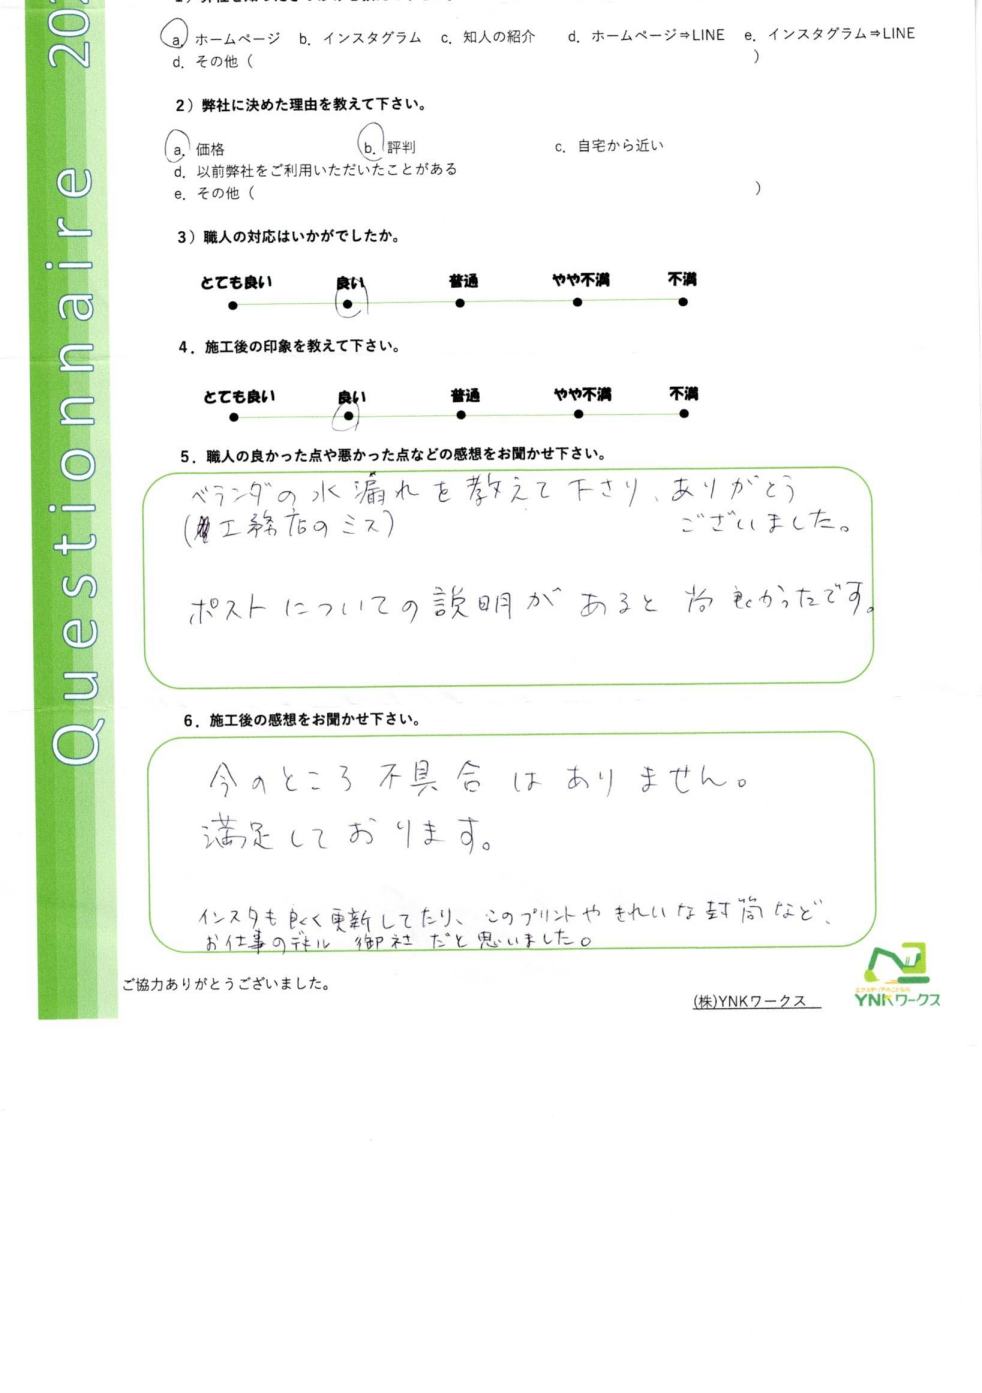 a. ホームページ b. インスタグラム c. 知人の紹介 d. ホームページ⇒LINE e. インスタグラム⇒LINE
d. その他（ ）
2）弊社に決めた理由を教えて下さい。
a. 価格 b. 評判 c. 自宅から近い
d. 以前弊社をご利用いただいたことがある
e. その他（ ）
3）職人の対応はいかがでしたか。
とても良い 良い 普通 やや不満 不満
4．施工後の印象を教えて下さい。
とても良い 良い 普通 やや不満 不満
5．職人の良かった点や悪かった点などの感想をお聞かせ下さい。
ベランダの水漏れを教えて下さり、ありがとう
(工務店のミス) ございました。
ポストについての説明が あると 尚 良かったです。
6．施工後の感想をお聞かせ下さい。
今のところ 不具合 は ありません。
満足しております。
インスタも良く更新してたり、このプリントや きれいな封筒など、
お仕事の 御社 だと思いました。
ご協力ありがとうございました。
(株)YNKワークス
YNKワークス
Questionnaire 202